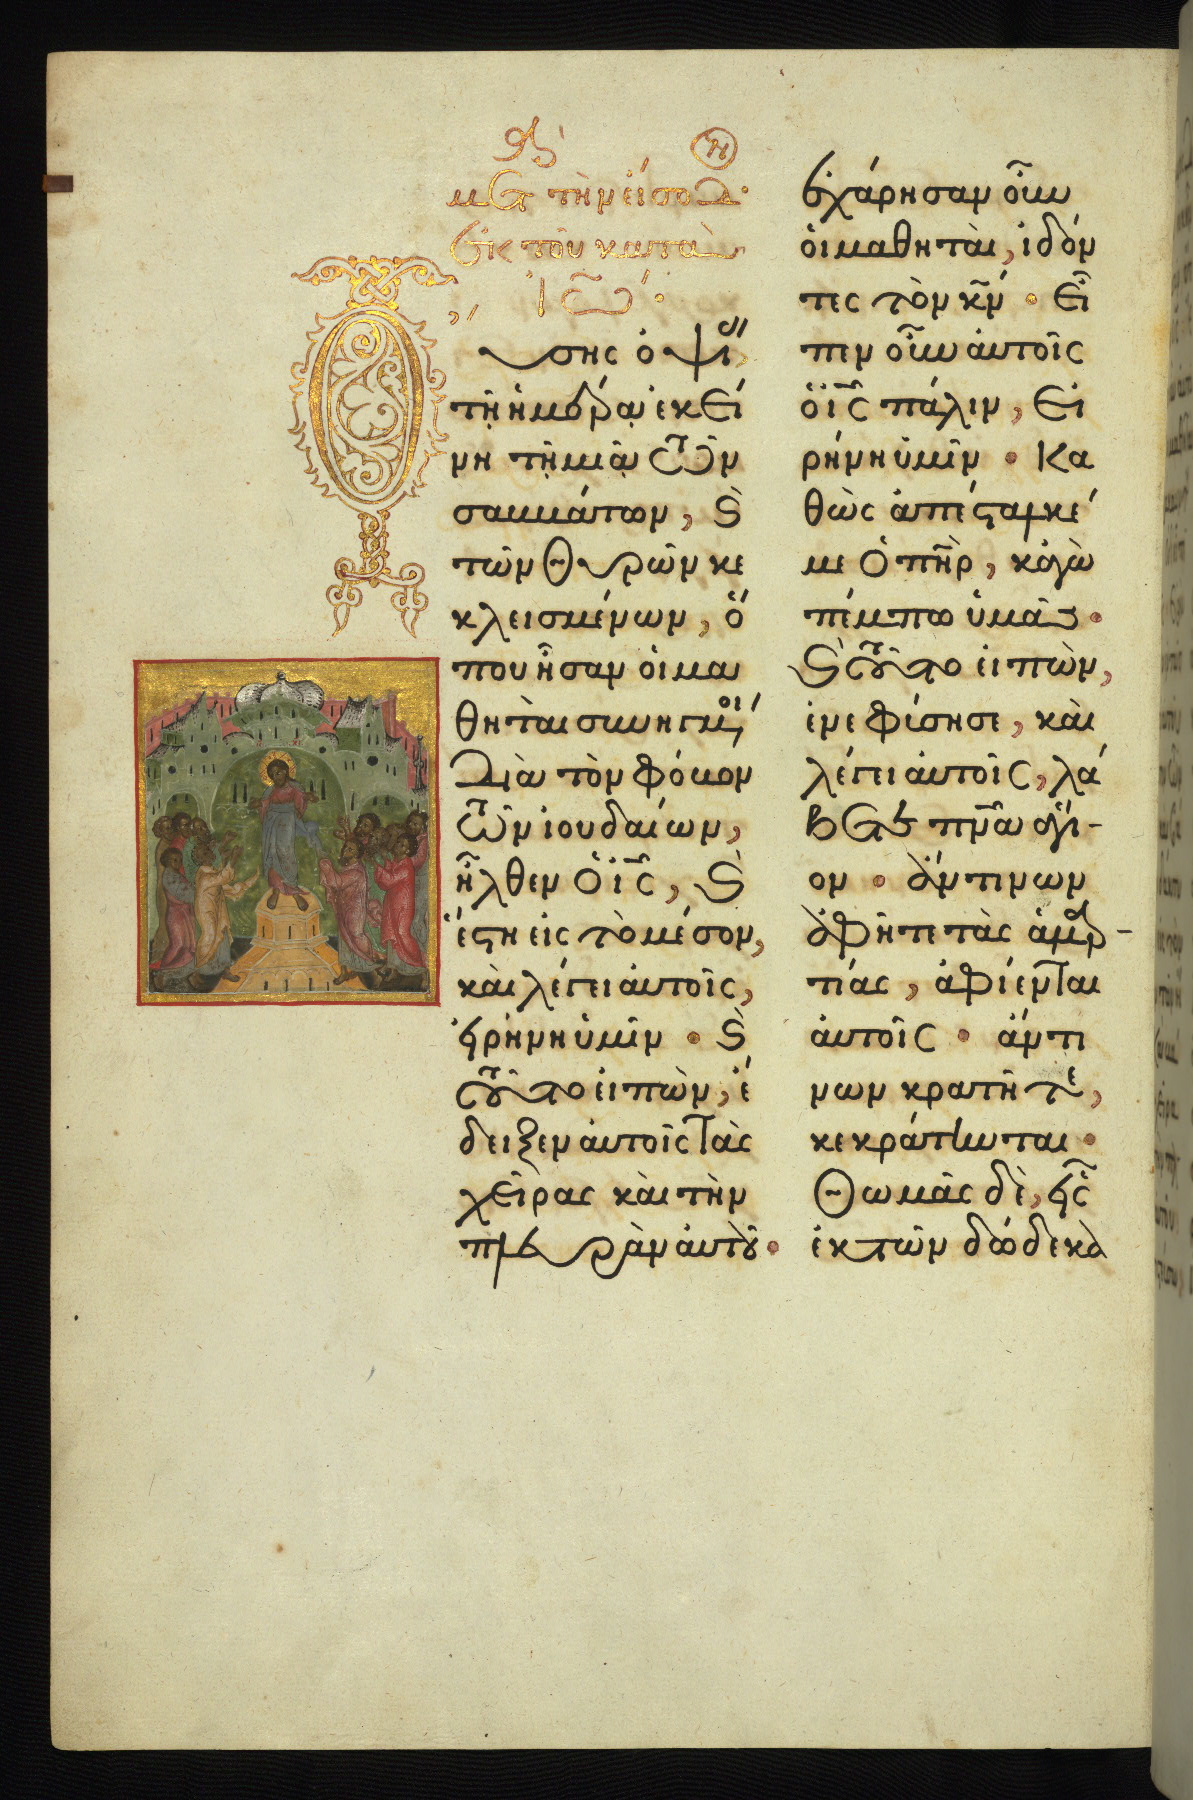 η
μετ τὴν εἴσοδ·
ἐκ τοῦ κατὰ
Ἰω·
Οὔσης ὀψί
τῇ ἡμέρᾳ ἐκεί
νῃ τῇ μιᾷ τῶν
σαββάτων, καὶ
τῶν θυρῶν κε
κλεισμένων, ὅ
που ἦσαν οἱ μα
θηταὶ συνηγμένοι,
διὰ τὸν φόβον
τῶν ἰουδαίων,
ἦλθεν ὁ ἰς, καὶ
ἔστη εἰς τὸ μέσον,
καὶ λέγει αὐτοῖς,
εἰρήνη ὑμῖν · καὶ
τοῦτο εἰπὼν, ἔ
δειξεν αὐτοῖς τὰς
χεῖρας καὶ τὴν
πλευρὰν αὐτοῦ ·
ἐχάρησαν οὖν
οἱ μαθηταὶ, ἰδόν
τες τὸν κν · εἶ
πεν οὖν αὐτοῖς
ὁ ἰς πάλιν, εἰ
ρήνη ὑμῖν · κα
θὼς ἀπέσταλκέ
με ὁ πηρ, κἀγὼ
πέμπω ὑμᾶς ·
καὶ τοῦτο εἰπὼν,
ἐνεφύσησε, καὶ
λέγει αὐτοῖς, λά
βετε πνα ἅγι-
ον · ἄν τινων
ἀφῆτε τὰς ἁμαρ-
τίας, ἀφίενται
αὐτοῖς · ἄν τι
νων κρατῆτε,
κεκράτηνται ·
Θωμᾶς δὲ, εἷς
ἐκ τῶν δώδεκα